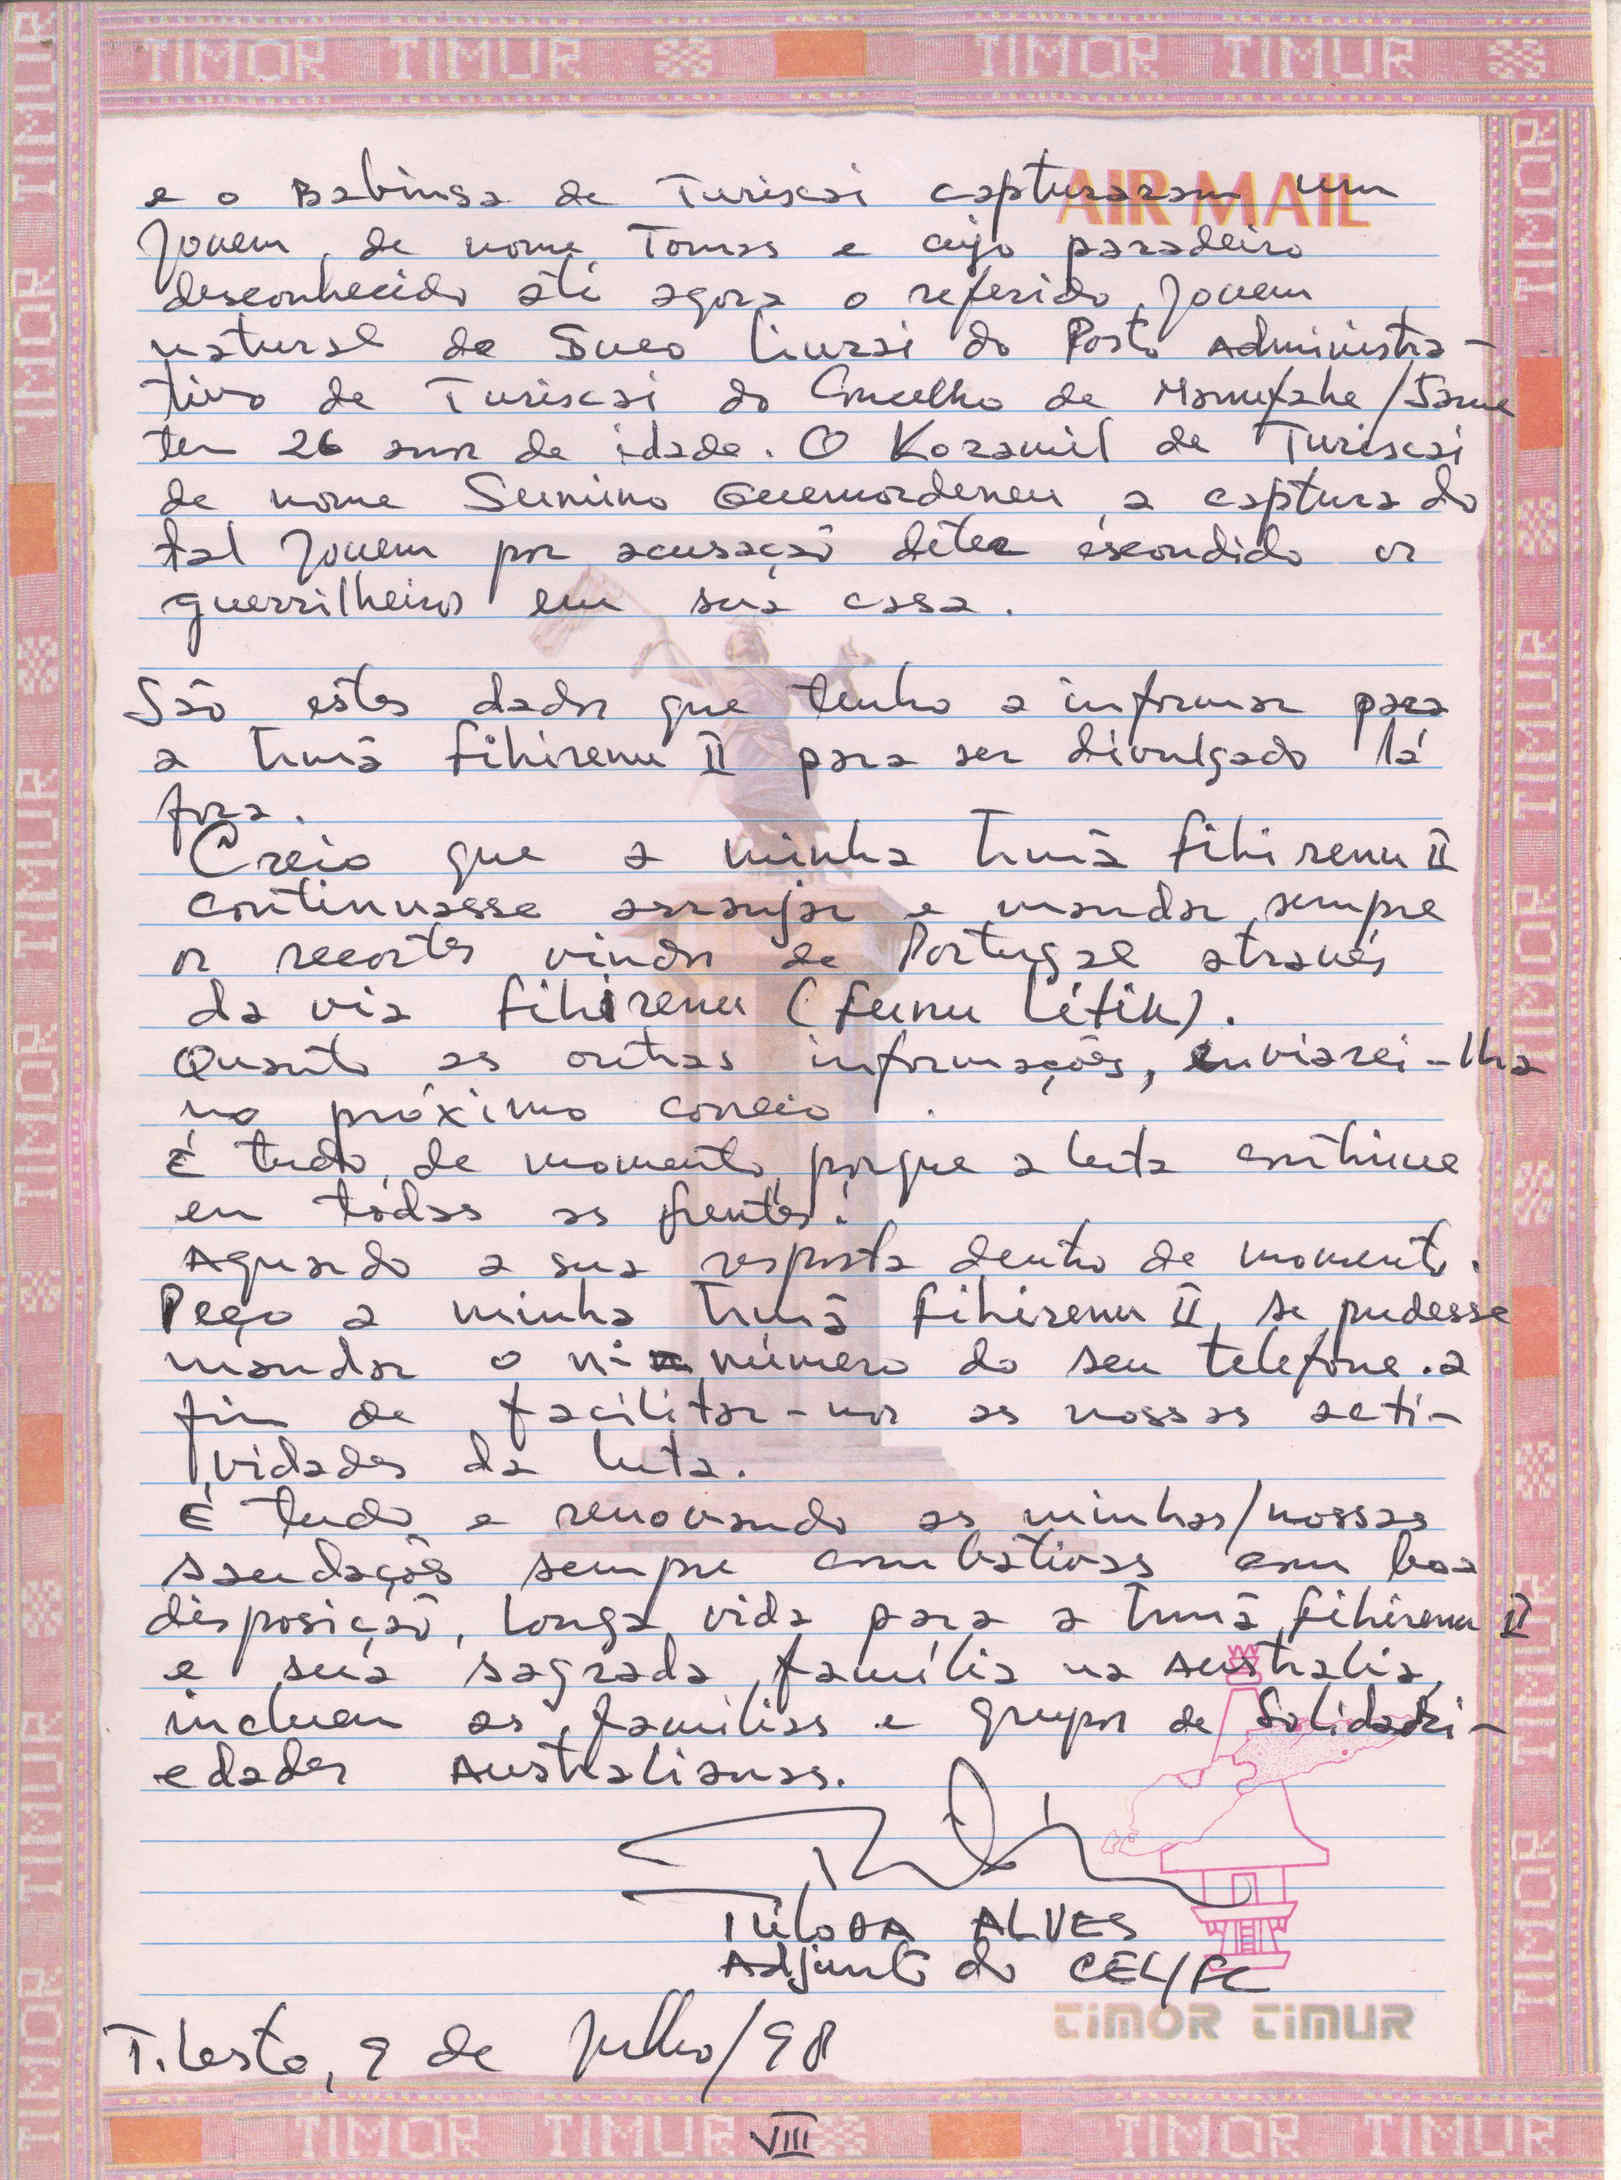 TIMOR TIMUR TIMOR TIMUR
AIR MAIL
e o Babinsa de Turiscai capturaram um
Jovem, de nome Tomas e cujo paradeiro
desconhecido até agora o referido Jovem
natural de Suco Liurai do Posto Administra-
tivo de Turiscai do Concelho de Manufahe/Same
tem 26 anos de idade. O Koramil de Turiscai
de nome Sumino a captura do
tal Jovem por acusação de ter escondido os
guerrilheiros em sua casa.
São estes dados que tenho a informar para
a Irmã Fihirenu II para ser divulgado lá
fora.
Creio que a minha Irmã Fihirenu II
continuasse arranjar e mandar sempre
os recortes vindos de Portugal através
da via Fihirenu (Funu Litik).
Quanto as outras informações, enviarei-lha
no próximo correio.
É tudo, de momento, porque a luta continue
em todas as frentes!
Aguardo a sua resposta dentro de momento.
Peço a minha Irmã Fihirenu II, se pudesse
mandar o número do seu telefone. a
fim de facilitar-nos as nossas acti-
vidades da luta.
É tudo e renovando as minhas/nossas
saudações sempre combativas com boa
disposição, longa vida para a Irmã Fihirenu II
e sua sagrada família na Australia,
incluem as famílias e grupos de Solidari-
edades Australianas.
ALVES
Adjunto do CEL/FC
TIMOR TIMUR
T. Leste, 9 de Julho/98
TIMOR TIMUR TIMOR TIMUR
VIII